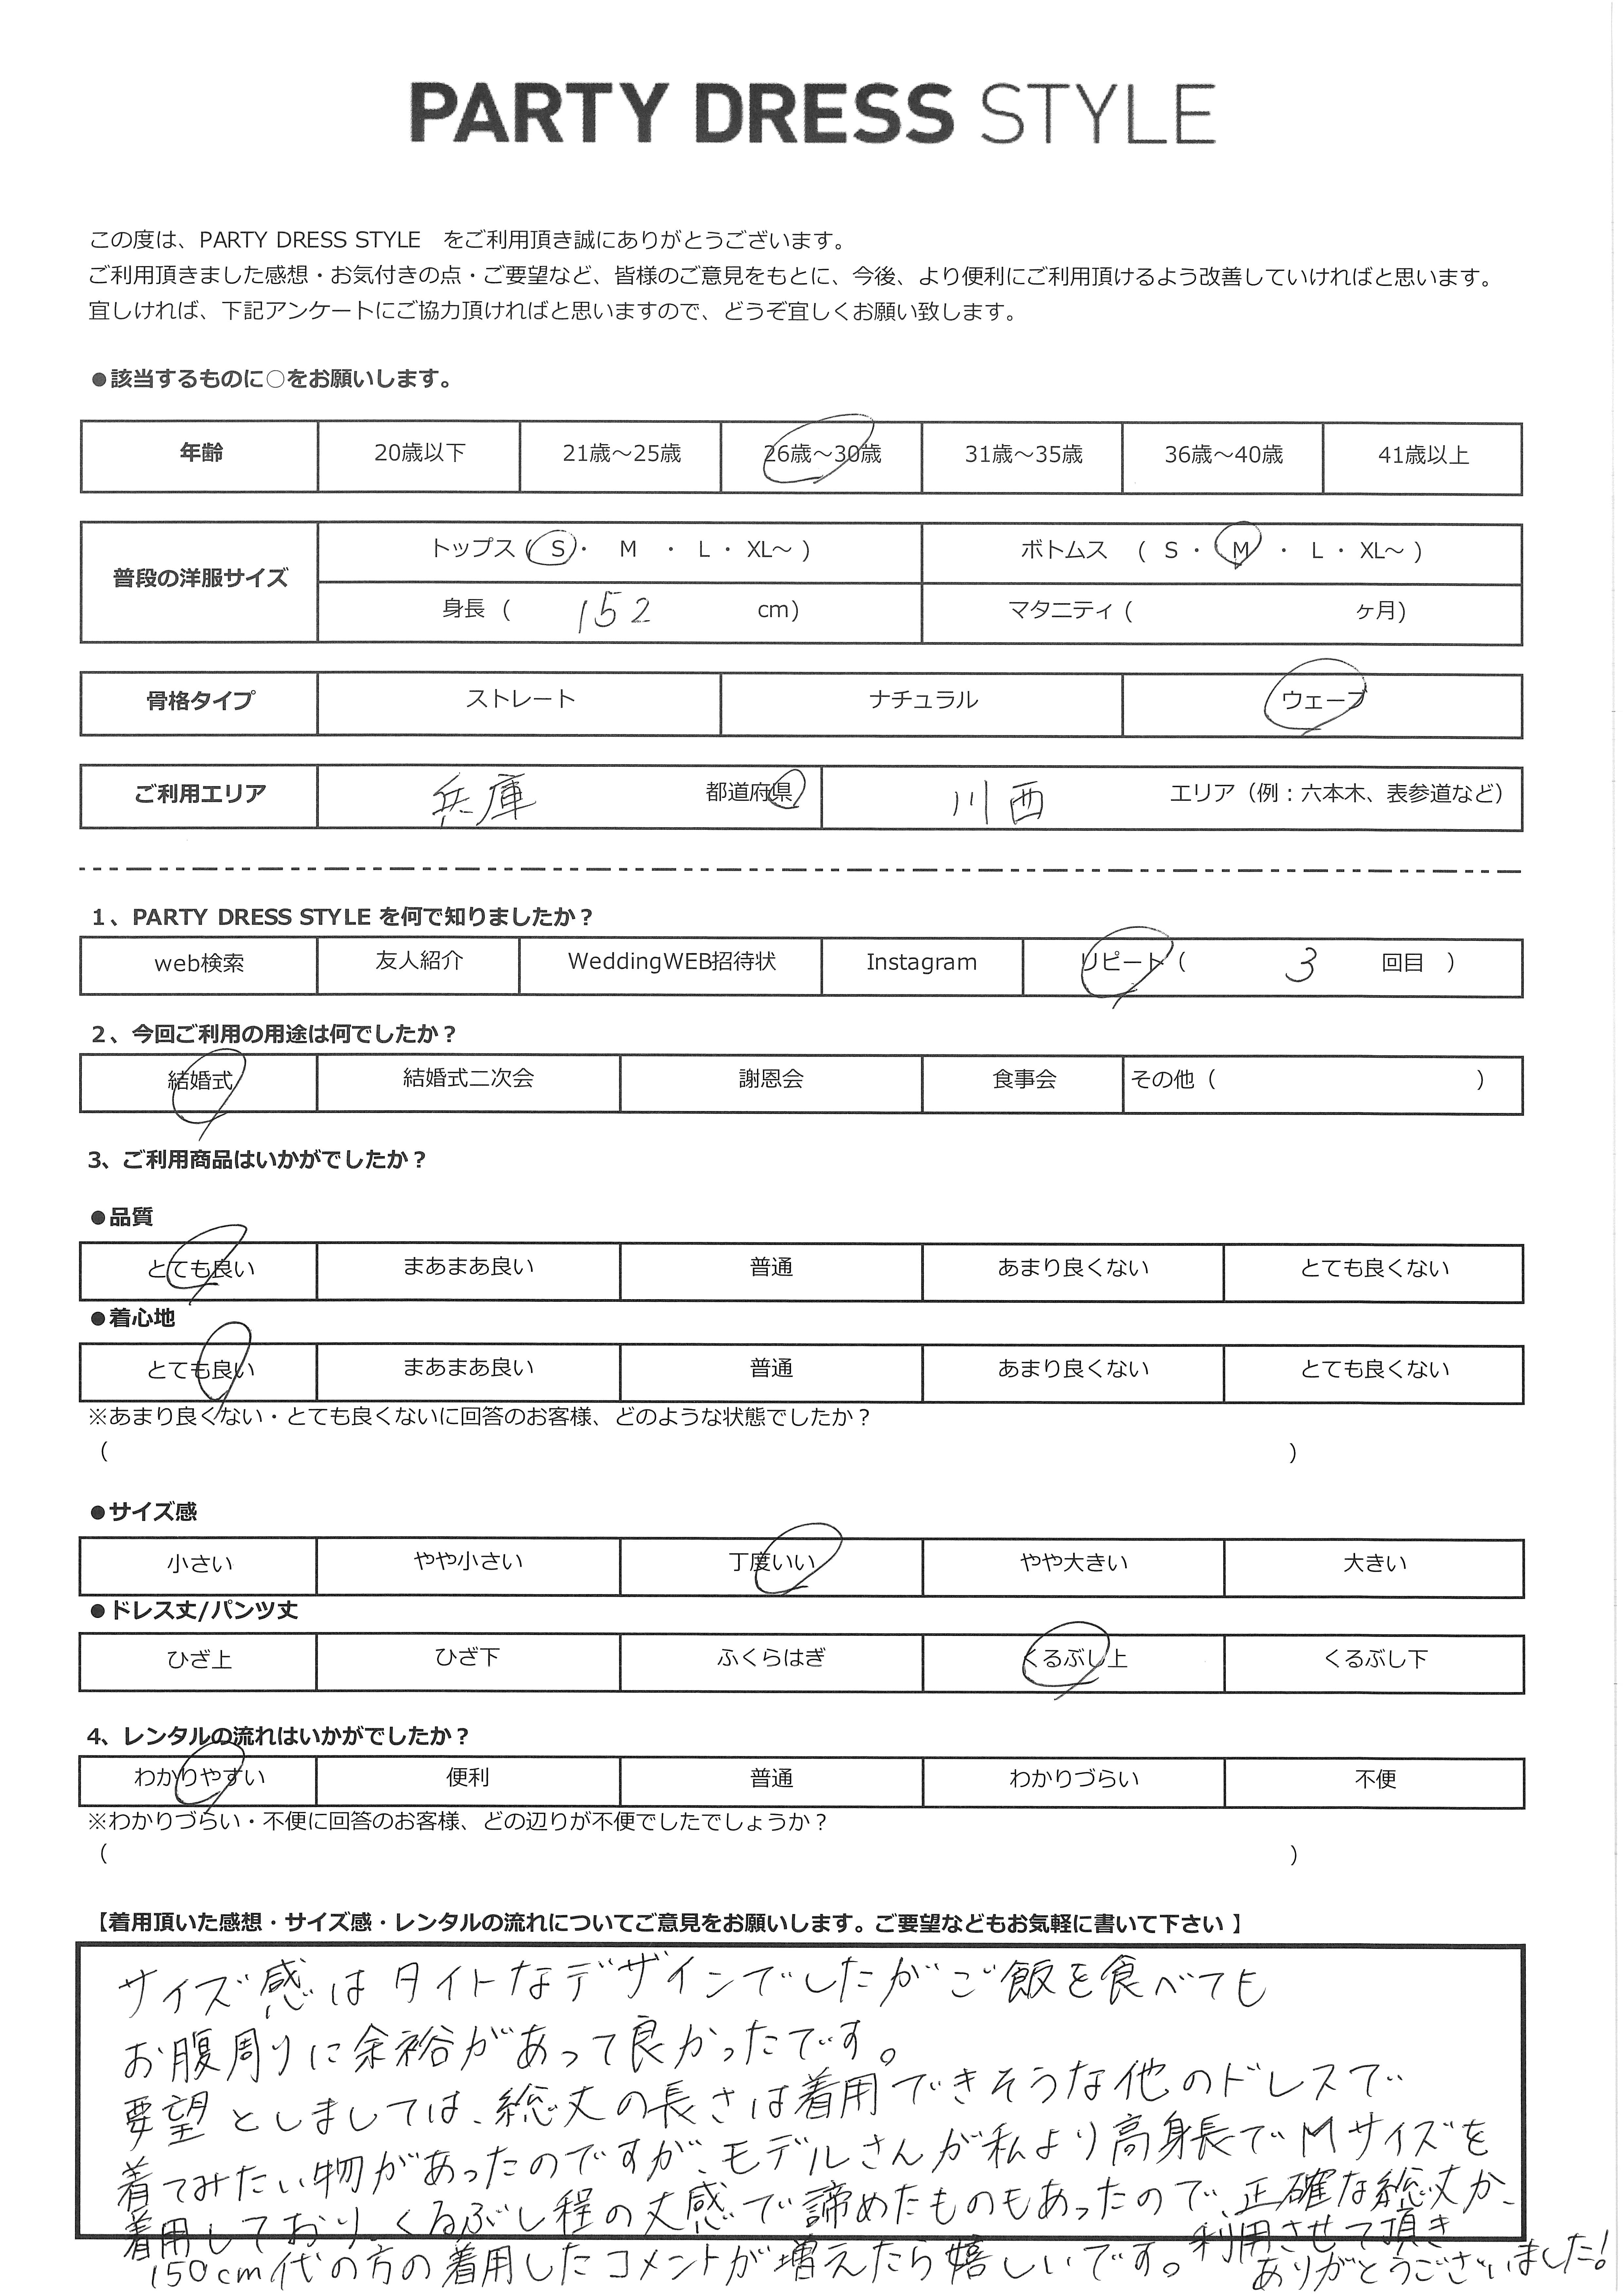 PARTY DRESS STYLE
この度は、PARTY DRESS STYLE　をご利用頂き誠にありがとうございます。
ご利用頂きました感想・お気付きの点・ご要望など、皆様のご意見をもとに、今後、より便利にご利用頂けるよう改善していければと思います。
宜しければ、下記アンケートにご協力頂ければと思いますので、どうぞ宜しくお願い致します。
●該当するものに○をお願いします。
年齢 20歳以下 21歳～25歳 26歳～30歳 31歳～35歳 36歳～40歳 41歳以上
普段の洋服サイズ トップス ( S ・ M ・ L ・ XL～ ) ボトムス ( S ・ M ・ L ・ XL～ )
身長 ( 152 cm) マタニティ ( ヶ月)
骨格タイプ ストレート ナチュラル ウェーブ
ご利用エリア 兵庫 都道府県 川西 エリア（例：六本木、表参道など）
1、PARTY DRESS STYLE を何で知りましたか？
web検索 友人紹介 WeddingWEB招待状 Instagram リピート ( 3 回目 )
2、今回ご利用の用途は何でしたか？
結婚式 結婚式二次会 謝恩会 食事会 その他 ( )
3、ご利用商品はいかがでしたか？
●品質
とても良い まあまあ良い 普通 あまり良くない とても良くない
●着心地
とても良い まあまあ良い 普通 あまり良くない とても良くない
※あまり良くない・とても良くないに回答のお客様、どのような状態でしたか？
( )
●サイズ感
小さい やや小さい 丁度いい やや大きい 大きい
●ドレス丈/パンツ丈
ひざ上 ひざ下 ふくらはぎ くるぶし上 くるぶし下
4、レンタルの流れはいかがでしたか？
わかりやすい 便利 普通 わかりづらい 不便
※わかりづらい・不便に回答のお客様、どの辺りが不便でしたでしょうか？
( )
【着用頂いた感想・サイズ感・レンタルの流れについてご意見をお願いします。ご要望などもお気軽に書いて下さい 】
サイズ感はタイトなデザインでしたがご飯を食べても
お腹周りに余裕があって良かったです。
要望としましては、総丈の長さは着用できそうな他のドレスで
着てみたい物があったのですが、モデルさんが私より高身長でMサイズを
着用しており、くるぶし程の丈感で諦めたものもあったので、正確な総丈か、
150cm代の方の着用したコメントが増えたら嬉しいです。利用させて頂き
ありがとうございました!